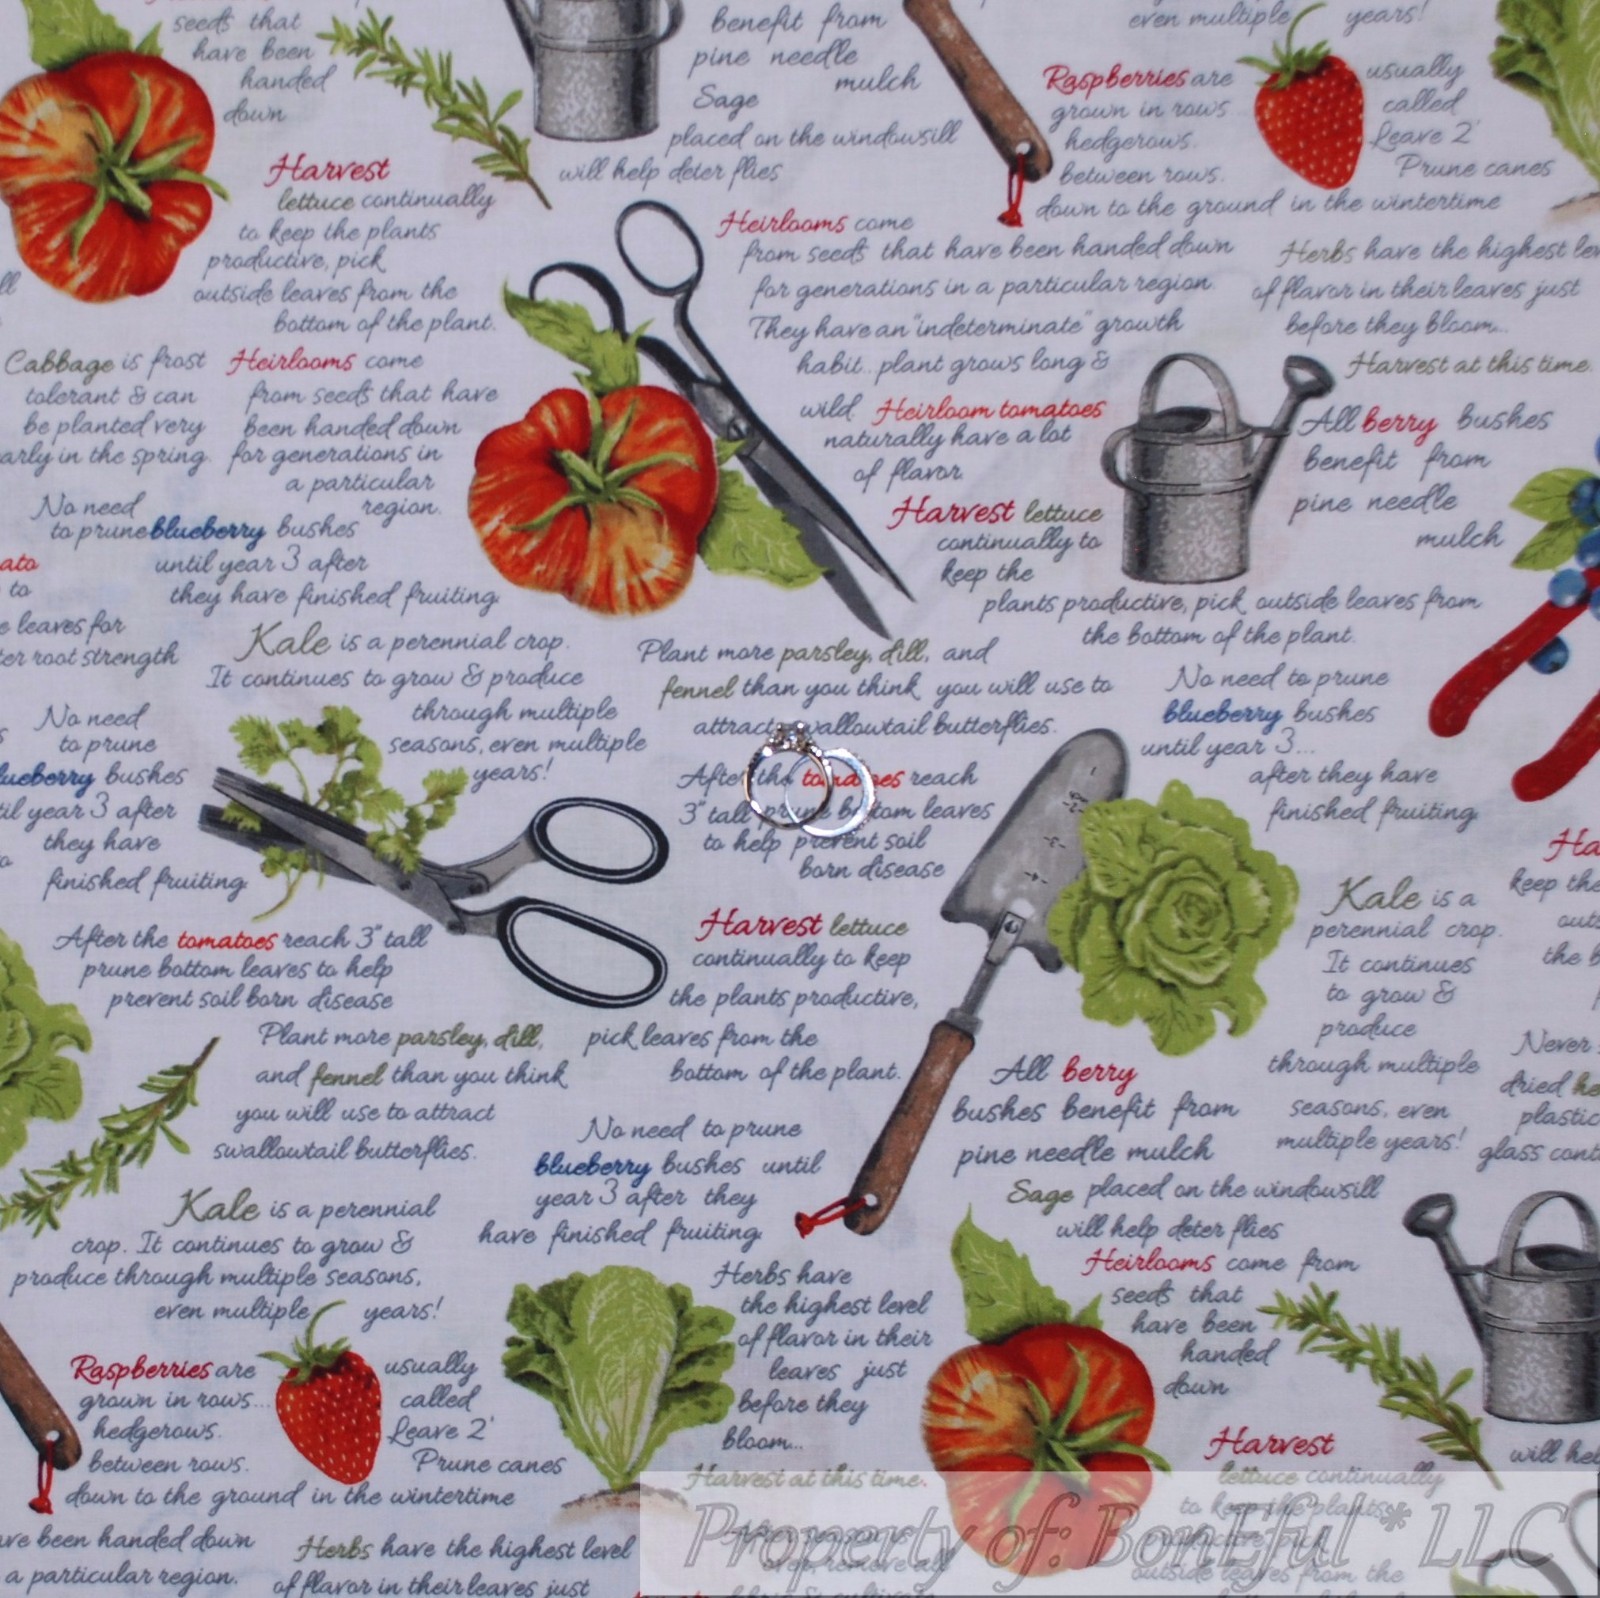 seeds that
have been
handed
down
benefit from
pine needle
mulch
Sage
placed on the windowsill
will help deter flies
even multiple years!
Raspberries are
grown in rows
hedgerows.
between rows.
usually
called
Leave 2'
Prune canes
down to the ground in the wintertime
Harvest
lettuce continually
to keep the plants
productive, pick
outside leaves from the
bottom of the plant.
Heirlooms come
from seeds that have been handed down
for generations in a particular region.
They have an "indeterminate" growth
habit...plant grows long &
wild Heirloom tomatoes
naturally have a lot
of flavor.
Herbs have the highest
of flavor in their leaves just
before they bloom...
Harvest at this time.
Cabbage is frost
tolerant & can
be planted very
early in the spring.
Heirlooms come
from seeds that have
been handed down
for generations in
a particular
region.
All berry bushes
benefit from
pine needle
mulch
No need
to prune blueberry bushes
until year 3 after
they have finished fruiting.
Harvest lettuce
continually to
keep the
plants productive, pick outside leaves from
the bottom of the plant.
to
leaves for
root strength
Kale is a perennial crop.
It continues to grow & produce
through multiple
seasons, even multiple
years!
Plant more parsley, dill, and
fennel than you think you will use to
attract swallowtail butterflies.
No need to prune
blueberry bushes
until year 3...
after they have
finished fruiting.
No need
to prune
blueberry bushes
until year 3 after
they have
finished fruiting.
After the tomatoes reach
3" tall prune bottom leaves
to help prevent soil
born disease
Kale is a
perennial crop.
It continues
to grow &
produce
through multiple
seasons, even
multiple years!
keep the
the
After the tomatoes reach 3" tall
prune bottom leaves to help
prevent soil born disease
Harvest lettuce
continually to keep
the plants productive,
pick leaves from the
bottom of the plant.
Plant more parsley, dill,
and fennel than you think
you will use to attract
swallowtail butterflies.
Never
dried
glass
All berry
bushes benefit from
pine needle mulch
No need to prune
blueberry bushes until
year 3 after they
have finished fruiting.
Sage placed on the windowsill
will help deter flies
Kale is a perennial
crop. It continues to grow &
produce through multiple seasons,
even multiple years!
Heirlooms come from
seeds that
have been
handed
down
Herbs have
the highest level
of flavor in their
leaves just
before they
bloom...
Harvest at this time.
Raspberries are
grown in rows...
hedgerows.
between rows.
usually
called
Leave 2'
Prune canes
down to the ground in the wintertime
Harvest
lettuce continually
to keep the plants
productive, pick
outside leaves from the
will
have been handed down
a particular region.
Herbs have the highest level
of flavor in their leaves just
season is
over, remove all
Property of: BonEful * LLC